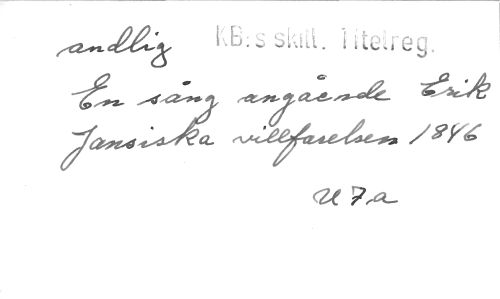 andlig KB:s skill. Titelreg.
En sång angående Erik
Jansiska villfarelsen 1846
U 7a